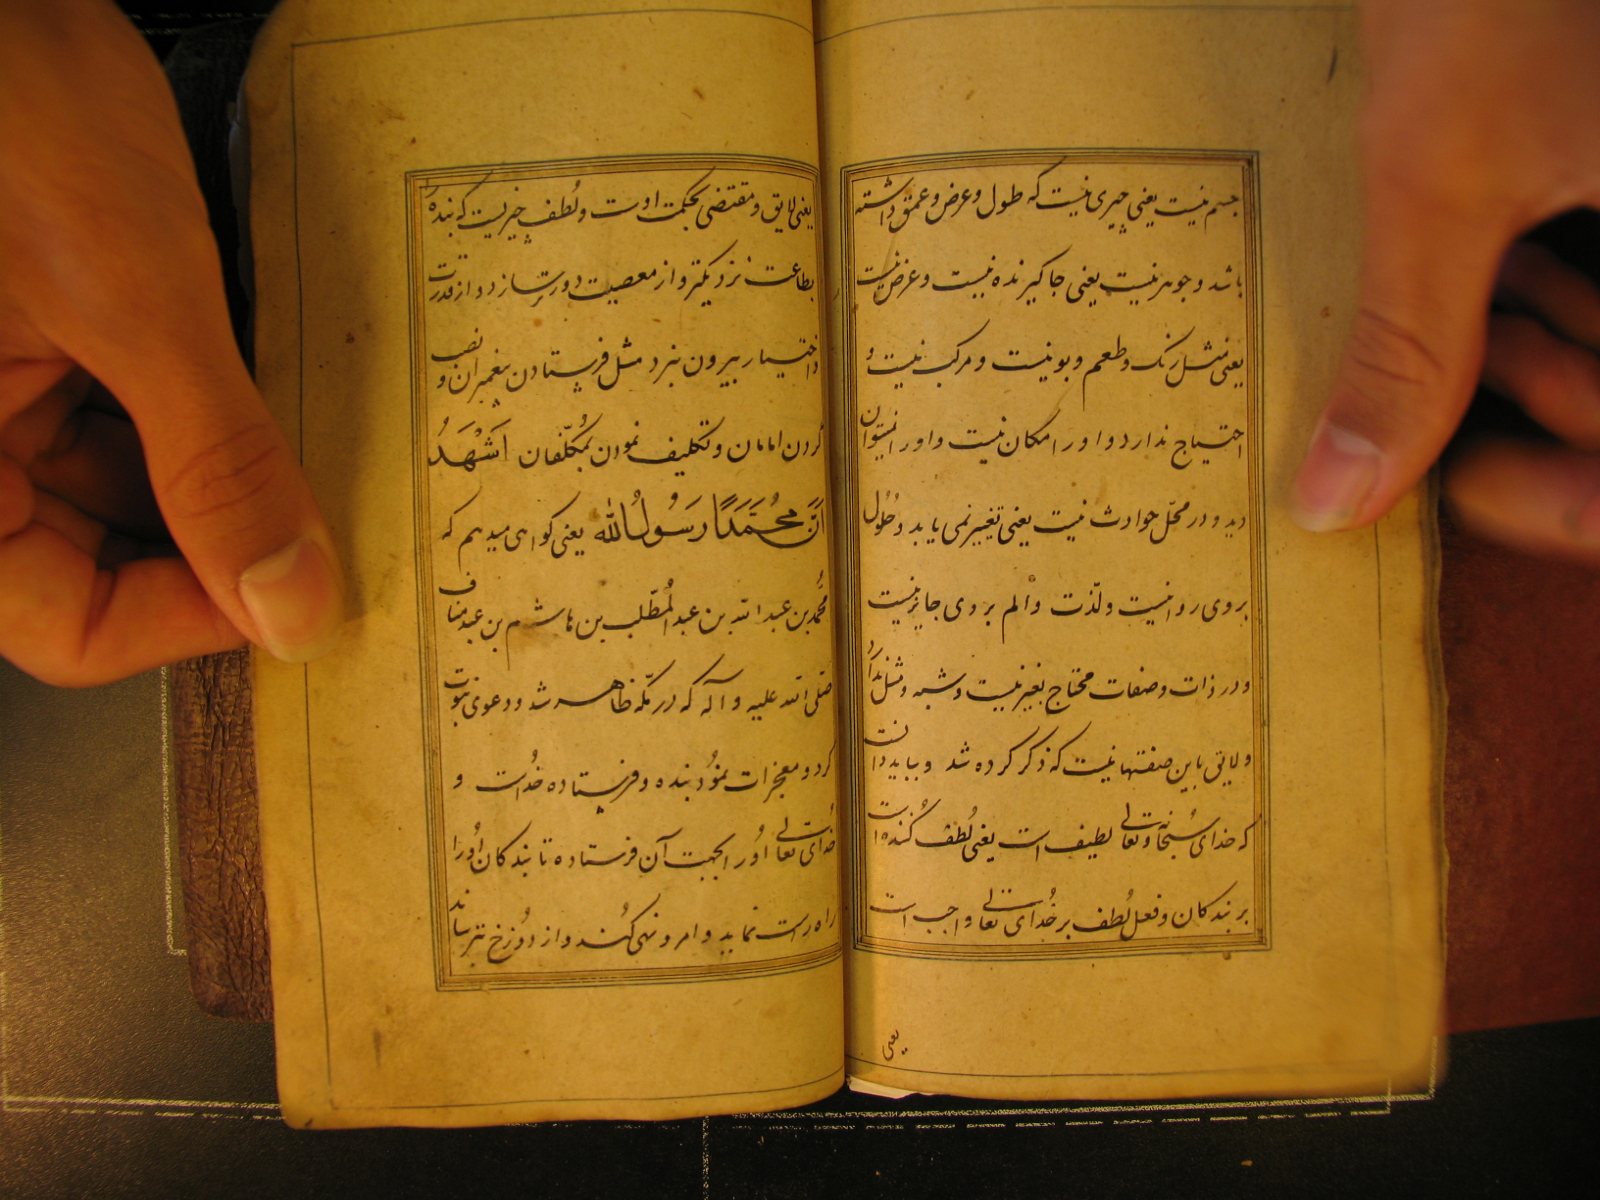 جسم نیست یعنی چیزی نیست که طول و عرض و عمق داشته
باشد و جوهر نیست یعنی جا گیرنده نیست و عرض نیست
یعنی مثل رنگ و طعم و بو نیست و مرکب نیست و
احتیاج ندارد و او را مکان نیست و او را نمیتوان
دید و در محلّ حوادث نیست یعنی تغییر نمی یابد و حُلُول
بر وی روا نیست و لذّت و الم بر وی جایز نیست
و در ذات و صفات محتاج بغیر نیست و شبه و مثل ندارد
و لایق باین صفتها نیست که ذکر کرده شد و بباید دانست
که خدای سُبحانه و تعالی لطیف است یعنی لُطف کُننده است
بر بندکان و فعل لُطف بر خُدای تعالی واجب است
یعنی
یعنی لایق و مقتضی بحکمت اوست و لُطف چیزیست که بنده را
بطاعت نزدیکتر و از معصیت دورتر سازد و از قدرت
و اختیار بیرون نبرد مثل فرستادن پیغمبران و نصب
کردن امامان و تکلیف نمودن بمُکلّفان اَشْهَدُ
اَنَّ مُحَمَّدًا رَسُولُ الله یعنی کواهی میدهم که
محُمّد بن عبد الله بن عبد المُطّلب بن هاشم بن عبد مناف
صلّی الله علیه و آله که در مکّه ظاهر شد و دعوی نبوت
کرد و معجزات نمُود بنده و فرستاده خداست و
خُدای تعالی اُو را بجهت آن فرستاده تا بندکان اُو را
راه راست نماید و امر و نهی کُند و از دُوزخ بترساند